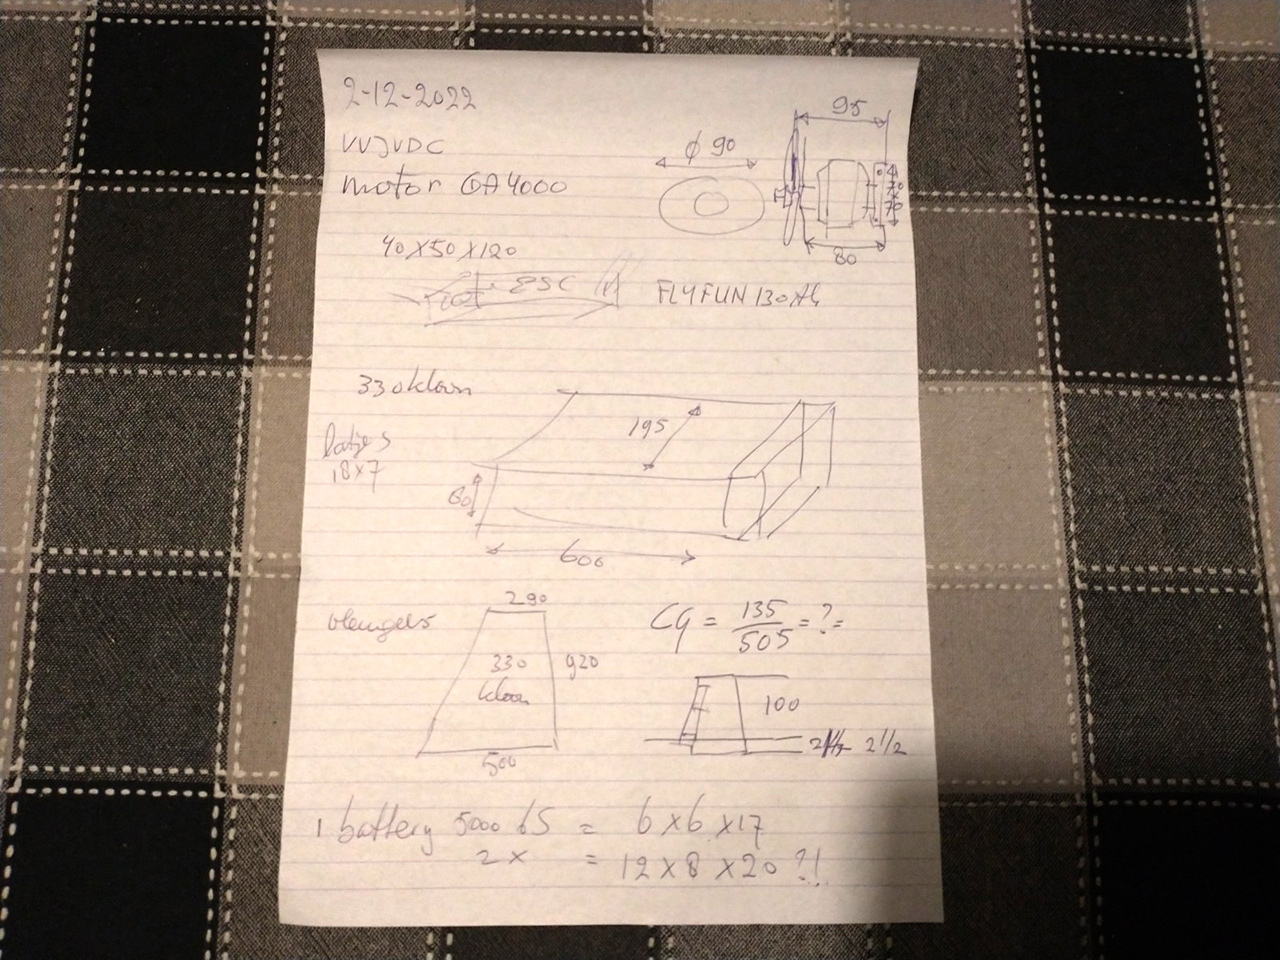 2-12-2022
VVJVDC
motor QA4000
ϕ 90
95
80
40X50X120
ESC
FLYFUN 130A
330 klaar
latjes
18x7
195
60
600
vleugels
290
330
klaar
920
500
CG = 135/505 = ? =
100
2 1/2
1 battery 5000 6S = 6 x 6 x 17
2 x = 12 x 8 x 20 ?!